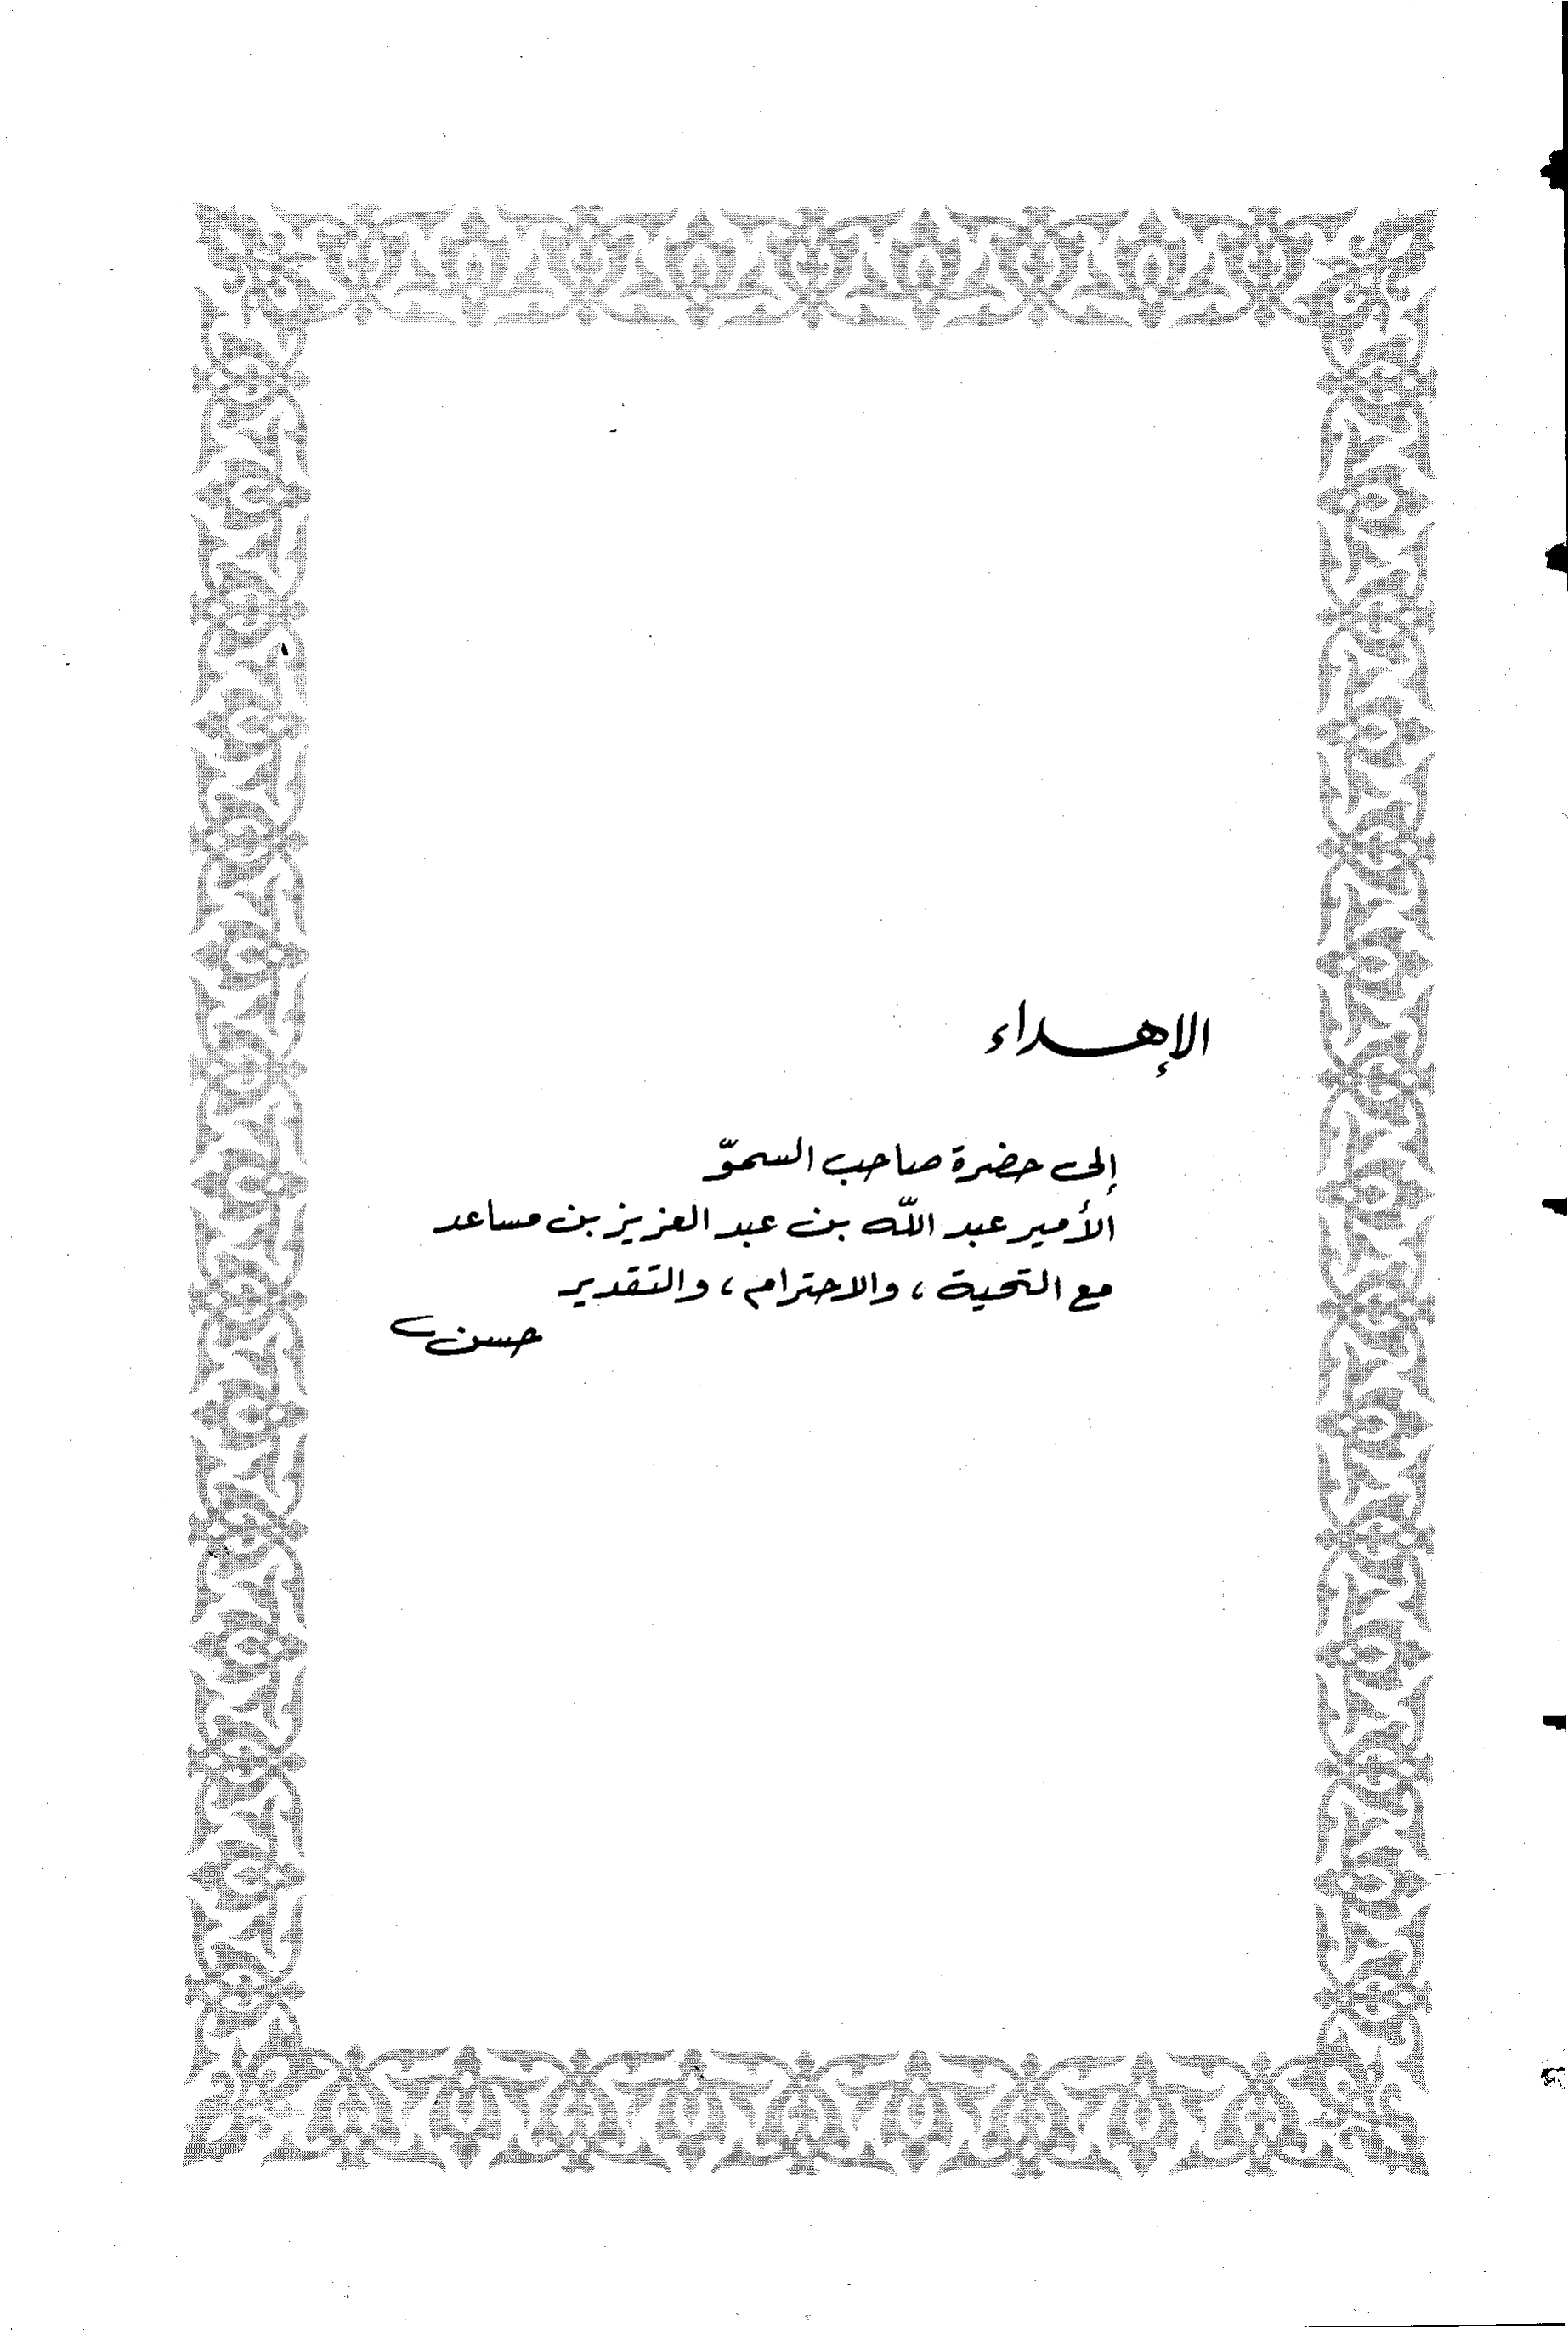 الإهداء
إلى حضرة صاحب السموّ
الأمير عبد اللّه بن عبد العزيز بن مساعد
مع التحية ، والاحترام ، والتقدير
حسن